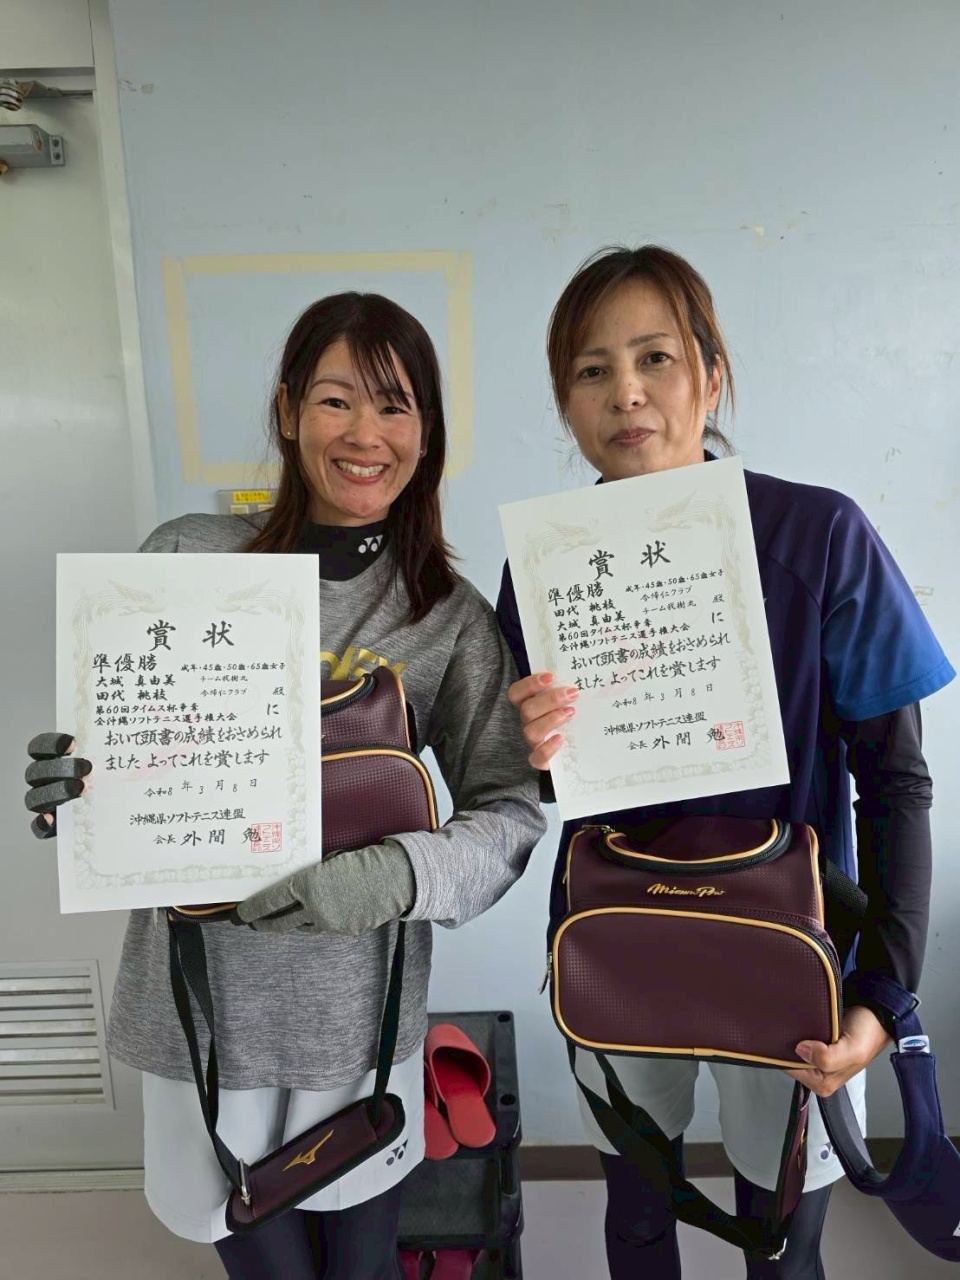 賞状
準優勝 成年・45歳・50歳・65歳女子
大城 真由美 チーム我樹丸
田代 桃枝 今帰仁クラブ 殿
第60回タイムス杯争奪
全沖縄ソフトテニス選手権大会 に
おいて頭書の成績をおさめられ
ました よってこれを賞します
令和8年3月8日
沖縄県ソフトテニス連盟
会長 外間 勉
賞状
準優勝 成年・45歳・50歳・65歳女子
田代 桃枝 今帰仁クラブ
大城 真由美 チーム我樹丸 殿
第60回タイムス杯争奪
全沖縄ソフトテニス選手権大会 に
おいて頭書の成績をおさめられ
ました よってこれを賞します
令和8年3月8日
沖縄県ソフトテニス連盟
会長 外間 勉
Mizuno Pro